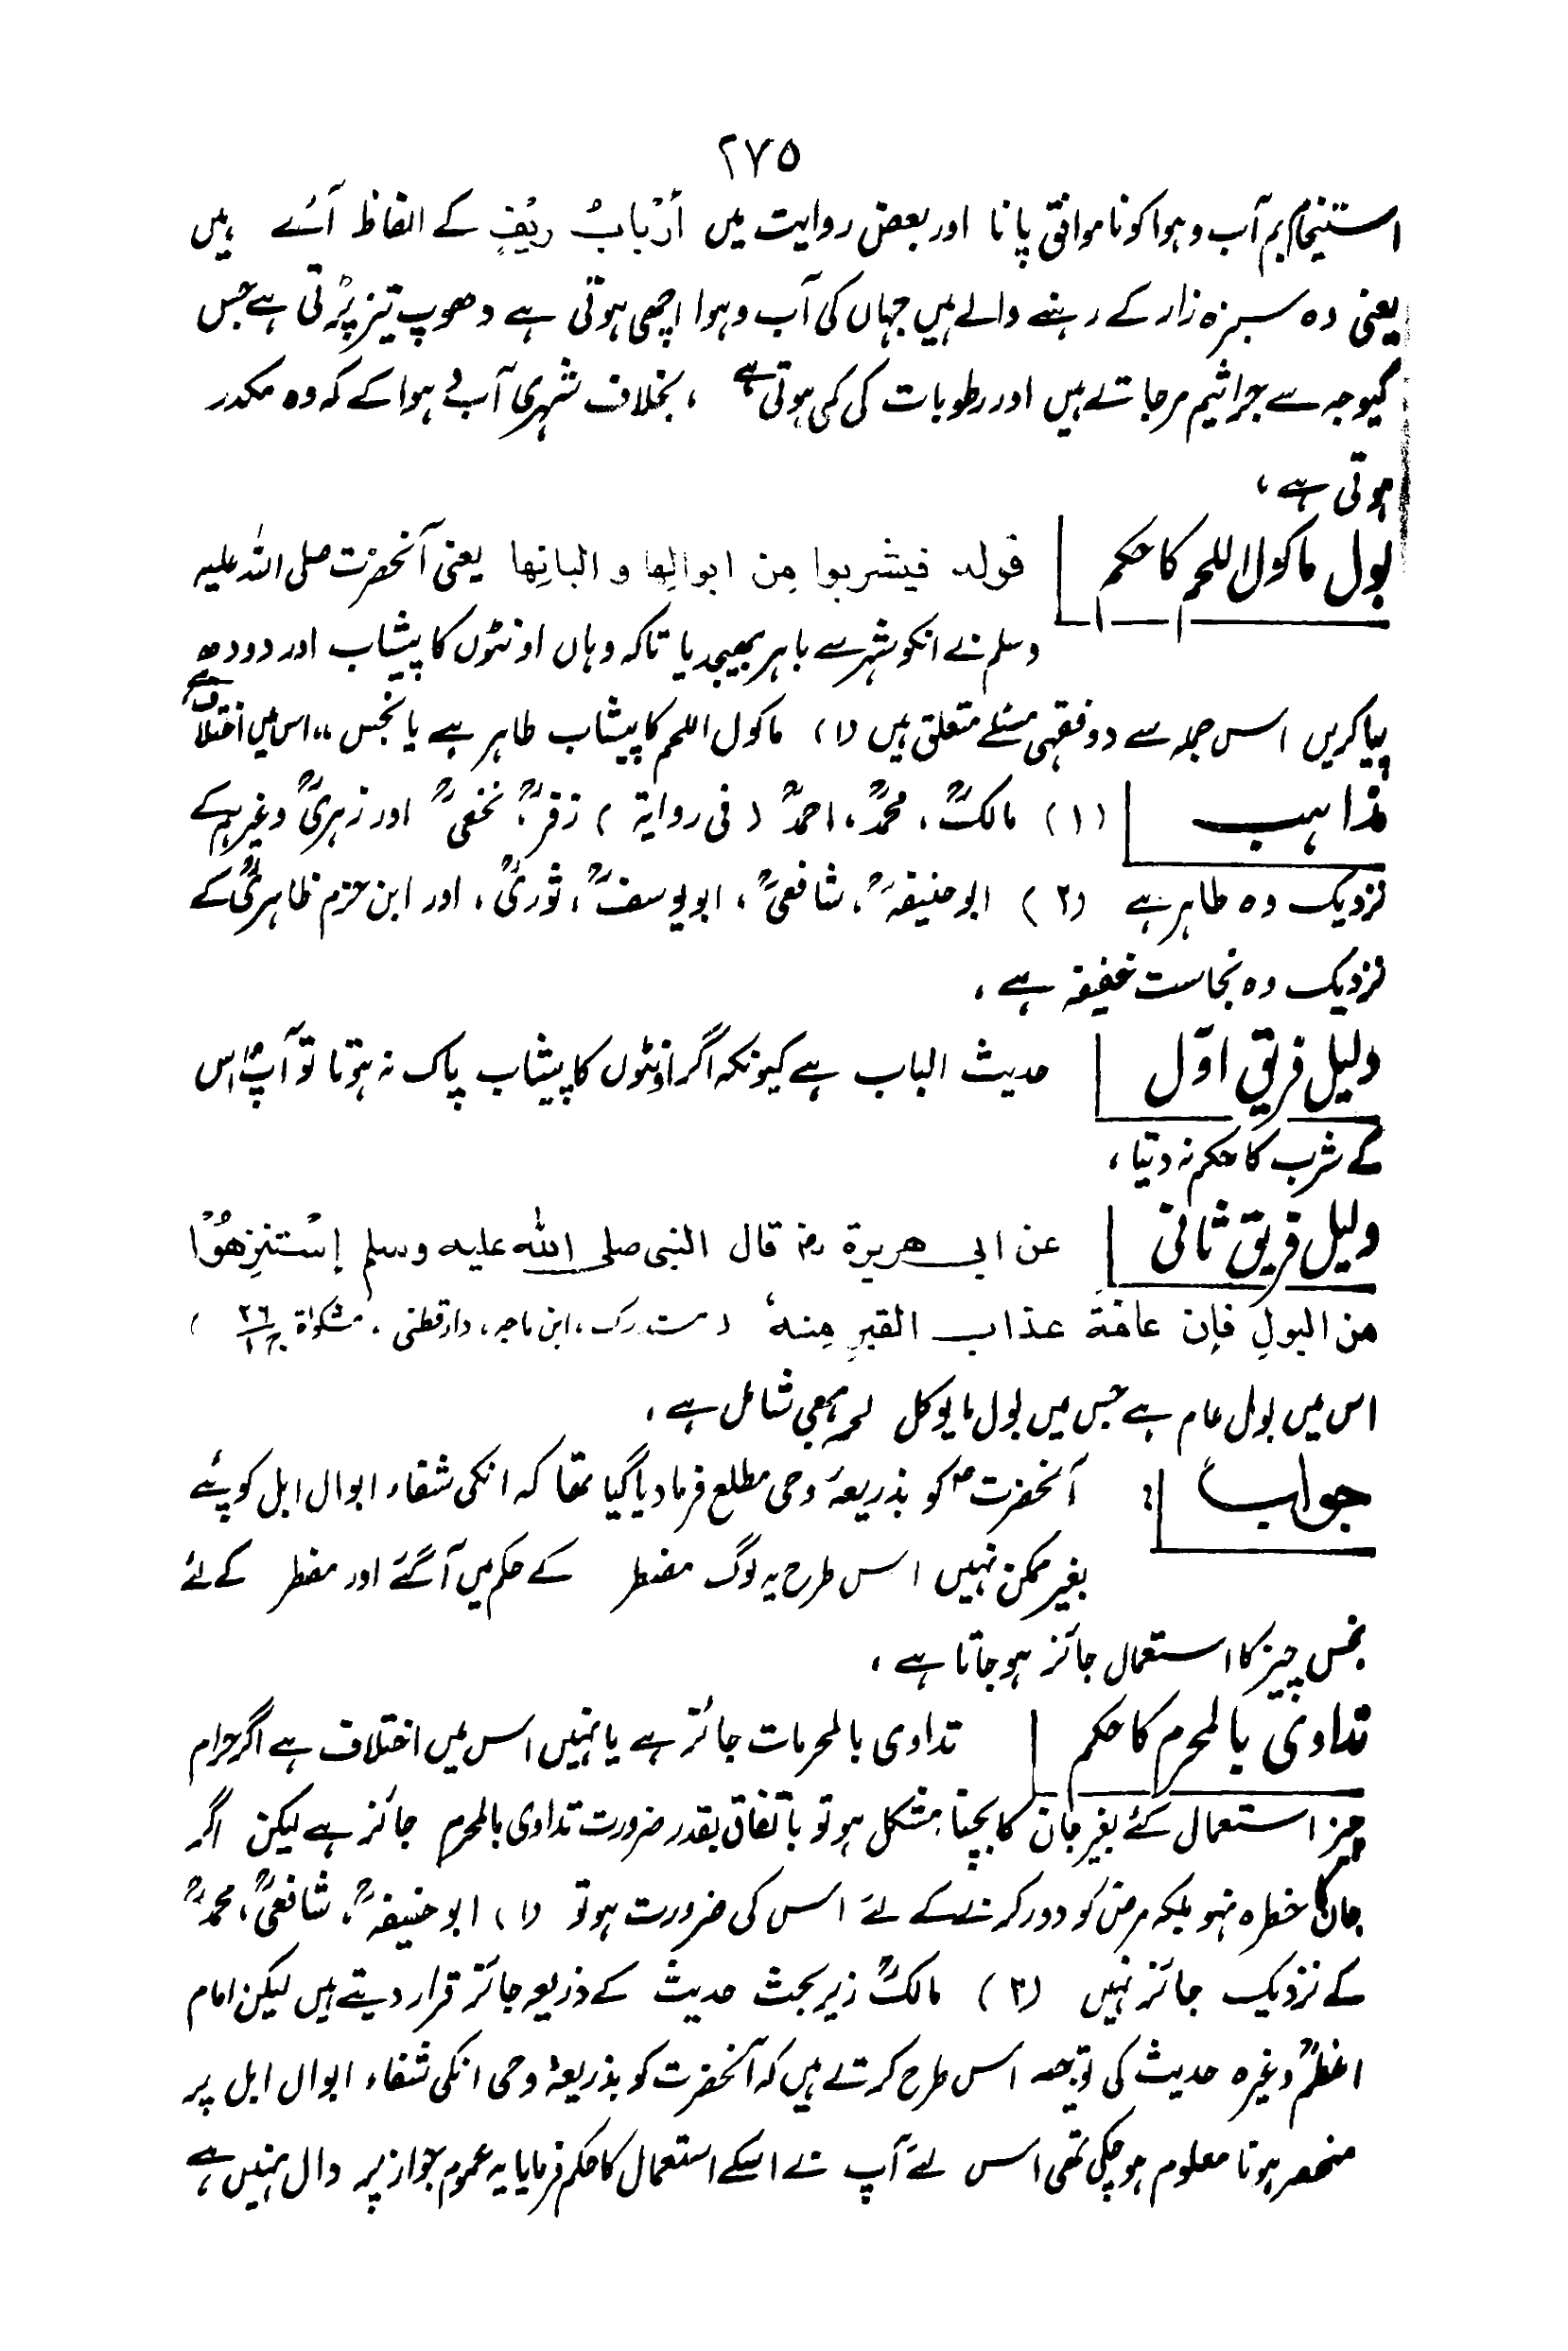 ۲۷۵
استیخام بم آب وہوا کو ناموافق پانا اور بعض روایت میں أرْبابُ رِیْفٍ کے الفاظ آئے ہیں
یعنی وہ سبزہ زار کے رہنے والے ہیں جہاں کی آب وہوا اچھی ہوتی ہے دھوپ تیز پڑتی ہے جس
کیوجہ سے جراثیم مرجاتے ہیں اور رطوبات کی کمی ہوتی ہے ، بخلاف شہری آب و ہوا کے کہ وہ مکدر
ہوتی ہے ،
بول ماکول اللحم کا حکم قولہ فیشربوا مِن ابوالِها و البانِها یعنی آنحضرت صلی اللہ علیہ
وسلم نے انکو شہر سے باہر بھیجدیا تاکہ وہاں اونٹوں کا پیشاب اور دودھ
پیا کریں اس جملہ سے دو فقہی مسئلے متعلق ہیں (۱) ماکول اللحم کا پیشاب طاہر ہے یا نجس ،، اس میں اختلاف ہے
مذاہب (۱) مالکؒ ، محمدؒ ، احمدؒ (فی روایۃ) زفرؒ ، نخعیؒ اور زہریؒ وغیرہم کے
نزدیک وہ طاہر ہے (۲) ابو حنیفہؒ ، شافعیؒ ، ابویوسفؒ ، ثوریؒ ، اور ابن حزم ظاہریؒ کے
نزدیک وہ نجاست خفیفہ ہے ،
دلیل فریق اوّل حدیث الباب ہے کیونکہ اگر اونٹوں کا پیشاب پاک نہ ہوتا تو آپؐ اس
کے شرب کا حکم نہ دیتا ،
دلیل فریق ثانی عن ابی هریرة رض قال النبی صلی الله علیه وسلم إسْتنزِهُوْا
من البولِ فإن عامّة عذاب القبرِ مِنهُ (مستدرک ، ابن ماجہ ، دارقطنی ، مشکوٰۃ ج۱ ۲۶)
اس میں بول عام ہے جس میں بول مایوکل لحمہ بھی شامل ہے ،
جواب : آنحضرت ؐ کو بذریعۂ وحی مطلع فرمادیا گیا تھا کہ انکی شفاء ابوال ابل کو پئے
بغیر ممکن نہیں اس طرح یہ لوگ مضطر کے حکم میں آگئے اور مضطر کے لئے
نجس چیز کا استعمال جائز ہوجاتا ہے ،
تداوی بالمحرم کا حکم تداوی بالمحرمات جائز ہے یا نہیں اس میں اختلاف ہے اگر حرام
چیز استعمال کئے بغیر جان کا بچنا مشکل ہو تو باتفاق بقدر ضرورت تداوی بالمحرم جائز ہے لیکن اگر
جان کا خطرہ نہو بلکہ مرض کو دور کرنے کے لئے اس کی ضرورت ہو تو (۱) ابو حنیفہؒ ، شافعیؒ ، محمدؒ
کے نزدیک جائز نہیں (۲) مالکؒ زیر بحث حدیث کے ذریعہ جائز قرار دیتے ہیں لیکن امام
اعظمؒ وغیرہ حدیث کی توجیہ اس طرح کرتے ہیں کہ آنحضرت کو بذریعۂ وحی انکی شفاء ابوال ابل پر
منحصر ہونا معلوم ہوچکی تھی اس لئے آپ نے اسکے استعمال کا حکم فرمایا یہ عموم جواز پر دال نہیں ہے ،